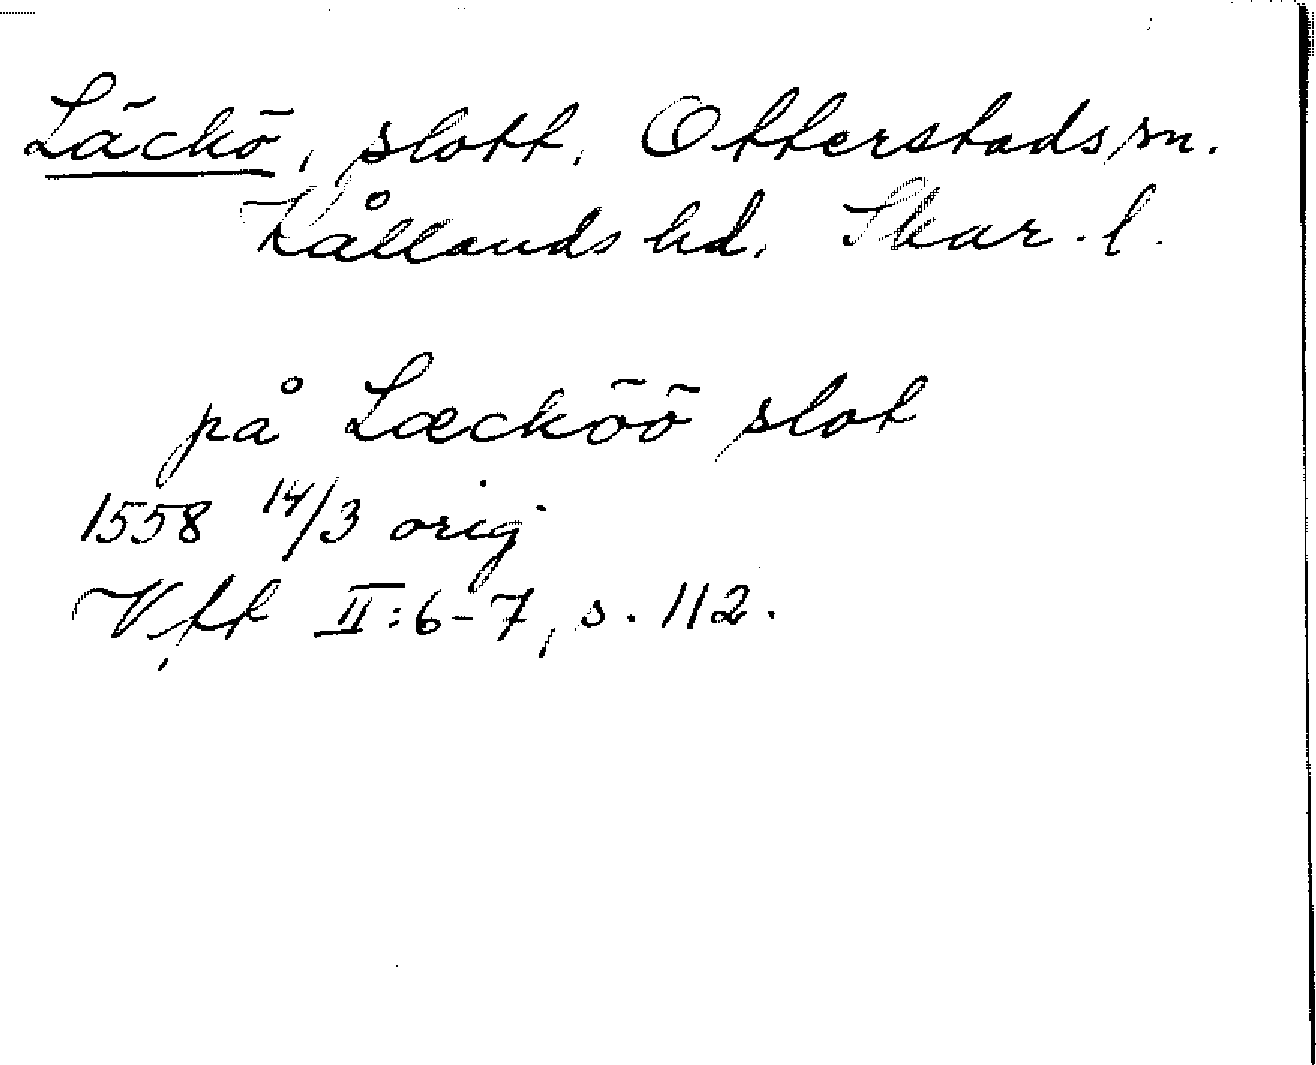 Läckö, slott, Otterstads sn.
Kållands hd. Skar. l.
på Læcköö slot
1558 14/3 orig
Vft II:6-7, s. 112.